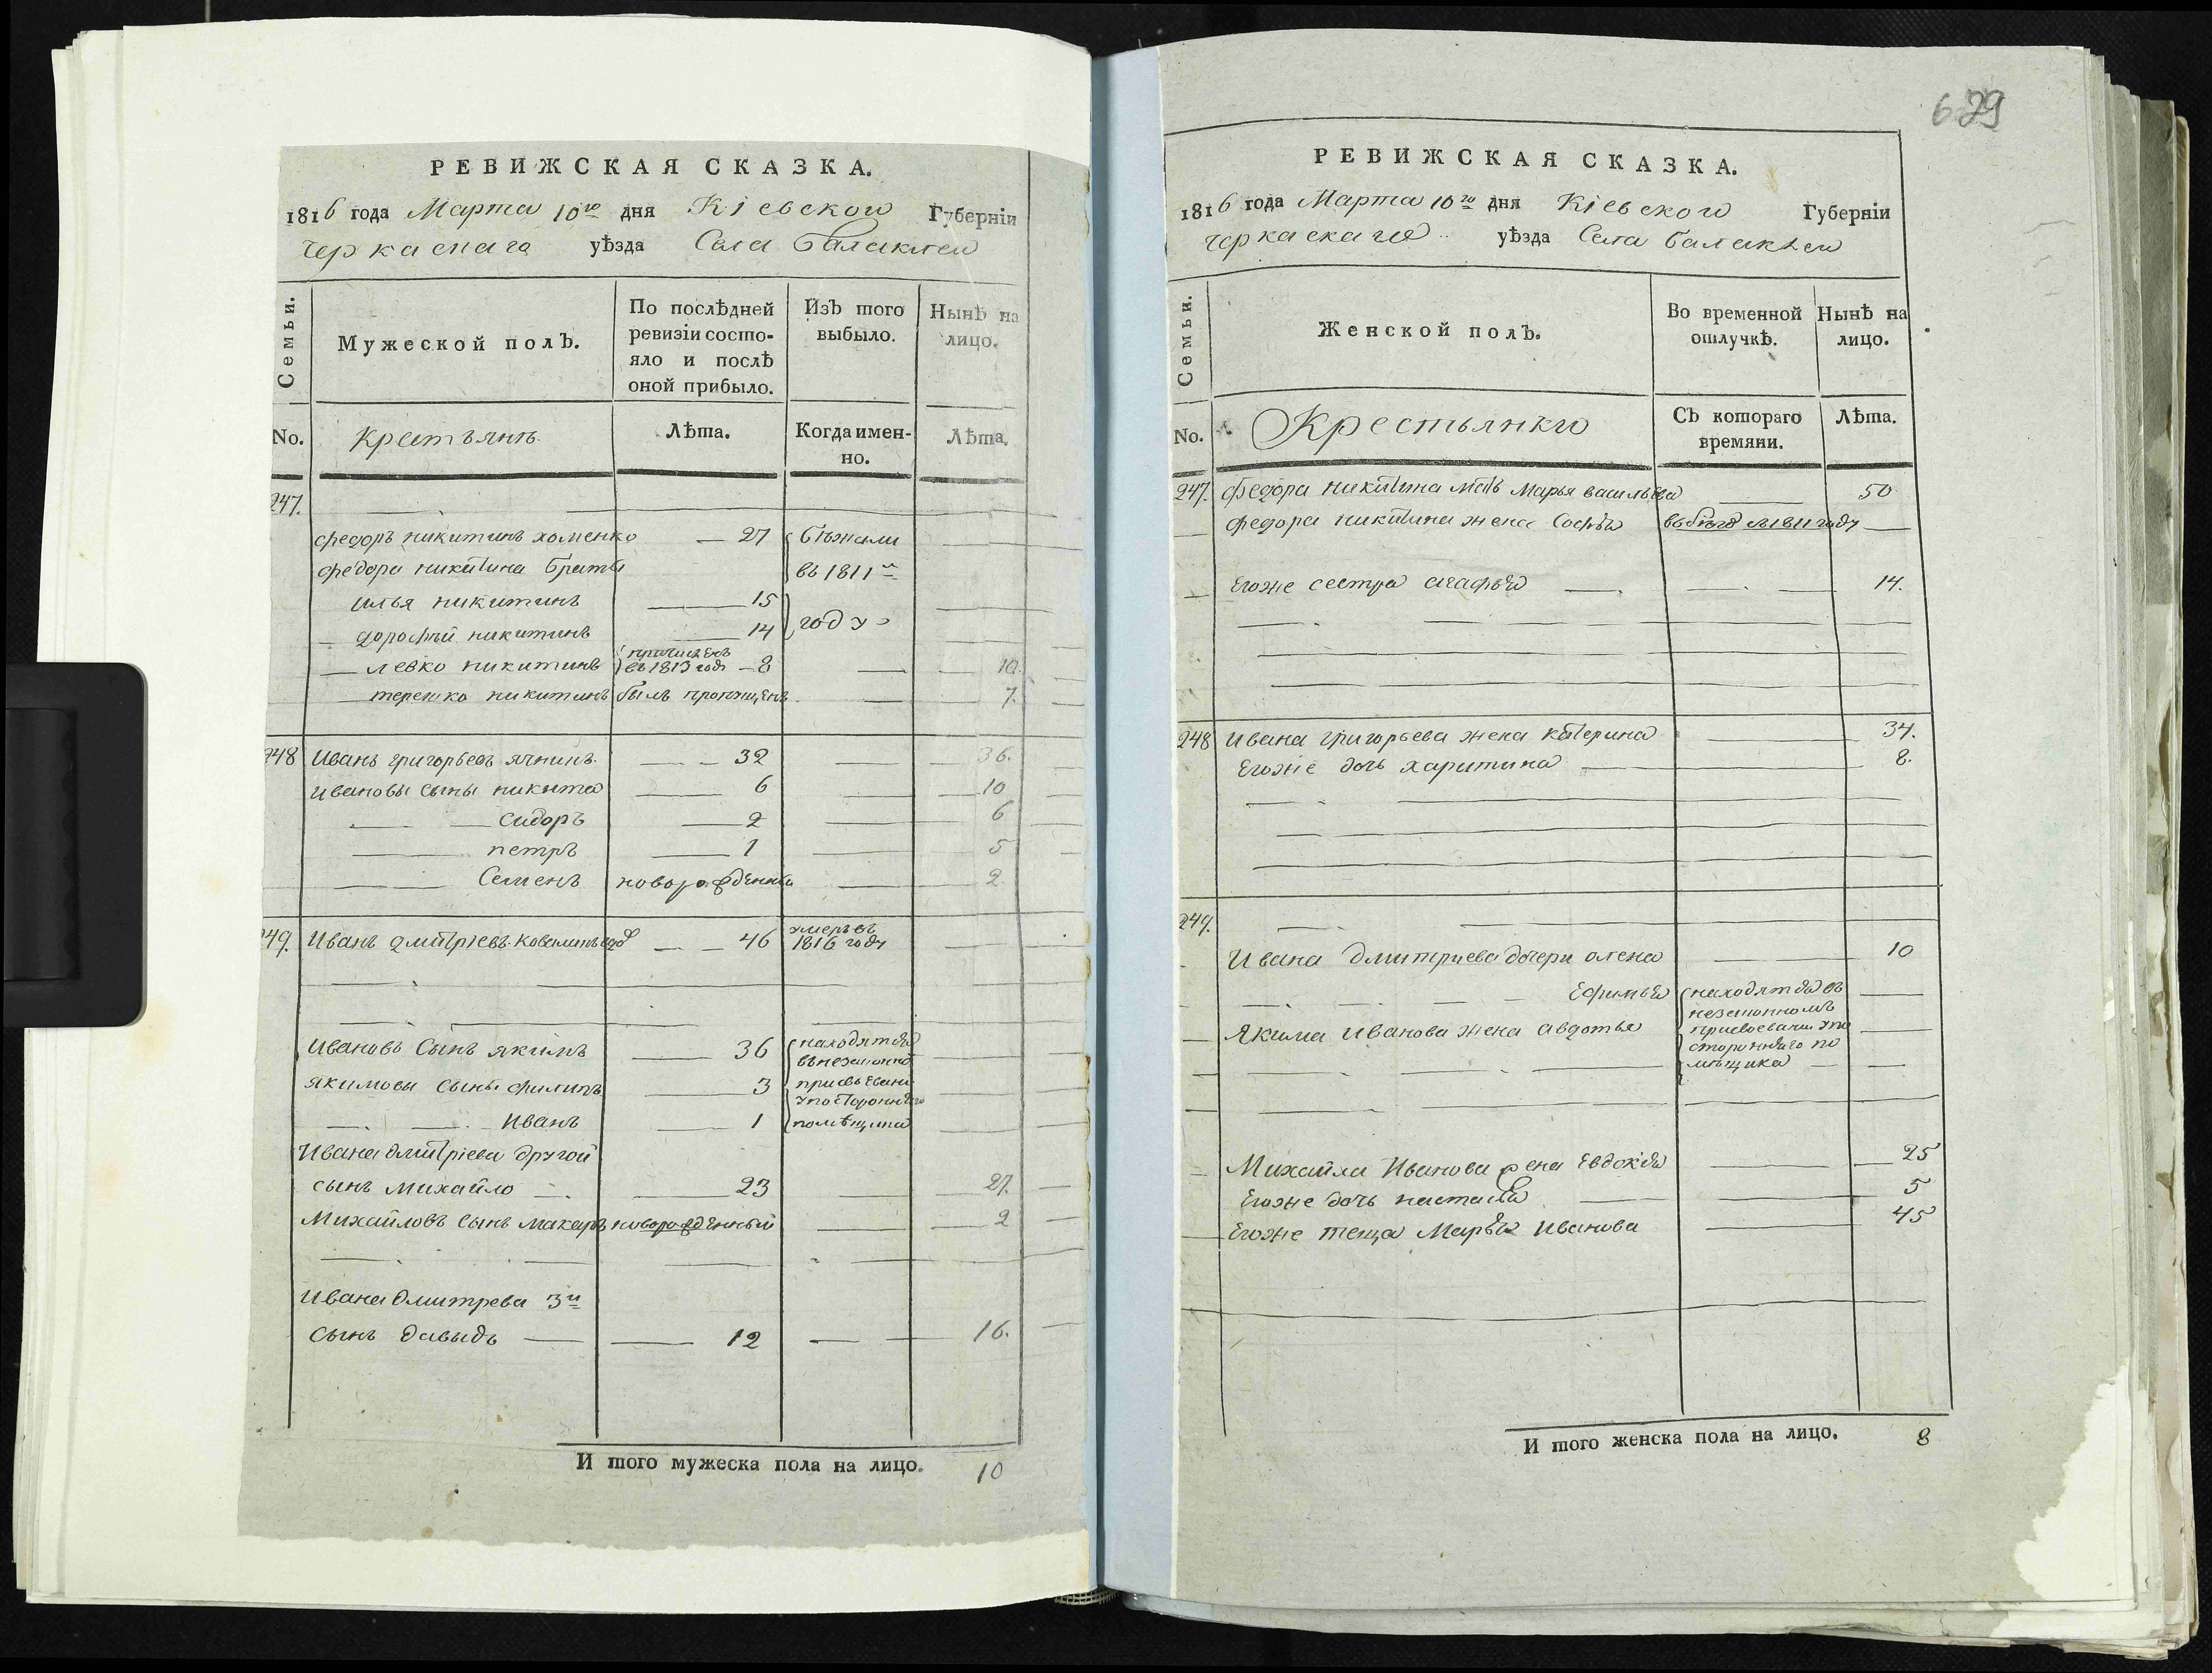 РЕВИЖСКАЯ СКАЗКА.
1816 года Марта 10го дня Кіевской Губерніи
Черкаскаго уѣзда Села Балаклеи
Семьи. Мужеской полъ. По послѣдней ревизіи состояло и послѣ оной прибыло. Изъ того выбыло. Нынѣ на лицо.
No. Крестьянъ Лѣта. Когда именно. Лѣта.
247.
федоръ никитинъ хоменко 27 бѣжали
федора никитина братья въ 1811м
илья никитинъ 15
дорофей никитинъ 14 году
левко никитинъ причисленъ въ 1813 году 8 10.
терешко никитинъ былъ пропущенъ 7.
248 Иванъ григорьевъ 32 36.
Ивановы сыны никита 6 10
Сидоръ 2 6
петръ 1 5
Семенъ новорожденный 2
249. Иванъ дмитріевъ 46 умеръ въ 1816 году
Ивановъ сынъ якимъ 36 находятся
якимовы сыны филипъ 3 въ незаконномъ присвоении
Иванъ 1 у посторонняго помѣщика
Ивана дмитріева другой
сынъ михайло 23 27.
Михайловъ сынъ макаръ новорожденный 2
Ивана дмитрева 3й
сынъ давыдъ 12 16.
И того мужеска пола на лицо. 10
629
РЕВИЖСКАЯ СКАЗКА.
1816 года Марта 10го дня Кіевской Губерніи
Черкаскаго уѣзда Села балаклеи
Семьи. Женской полъ. Во временной отлучкѣ. Нынѣ на лицо.
No. Крестьянки Съ котораго времяни. Лѣта.
247. федора никитина мать Марья васильева 50
федора никитина жена Софья въ бѣгах с 1811 году
Егоже сестра агафья 14.
248 Ивана григорьева жена катерина 34.
Егоже дочь харитина 8.
249.
Ивана дмитриева дочери олена 10
Ефимья находятся въ
незаконномъ
Якима Иванова жена авдотья присвоении у по
сторонняго по
мѣщика
Михайла Иванова жена Евдокія 25
Егоже дочь настася 5
Егоже теща Марья Иванова 45
И того женска пола на лицо. 8